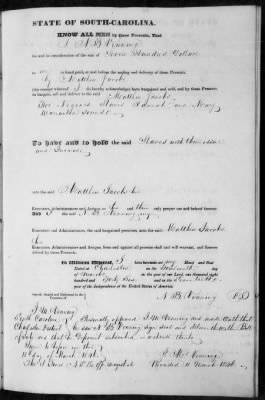 STATE OF SOUTH-CAROLINA.
KNOW ALL MEN by these Presents, That
I N B Venning
for and in consideration of the sum of Seven Hundred Dollars
to me in hand paid, at and before the sealing and delivery of these Presents,
by Matthew Jacobs
(the receipt whereof I do hereby acknowledge) have bargained and sold, and by these Presents do
bargain, sell and deliver to the said Matthew Jacobs
Negroes Slaves Hannah and Mary
Warranted Sound
To have and to hold the said Slaves with their issue
and increase
unto the said Matthew Jacobs his
Executors, Administrators and Assigns, to his and their only proper use and behoof forever
And I the said N B Venning my
Executors and Administrators, and the said bargained premises, unto the said Matthew Jacobs
his
Executors, Administrators and Assigns, from and against all persons shall and will warrant, and forever
defend by these Presents.
In Witness Whereof, I my Hand and Seal
Dated at Charleston on the day
of March in the year of our Lord, one thousand eight
hundred and Forty and in the
year of the Independence of the United States of America.
Signed, Sealed and Delivered in the
Presence of
N B Venning
J M Venning
South Carolina Personally appeared J M Venning and made oath that
Charleston District he saw N B Venning sign seal and deliver the within Bill
of Sale and that Deponent subscribed as witness thereto
Sworn to before me this
10 day of March 1846
J M Venning
Recorded 11 March 1846